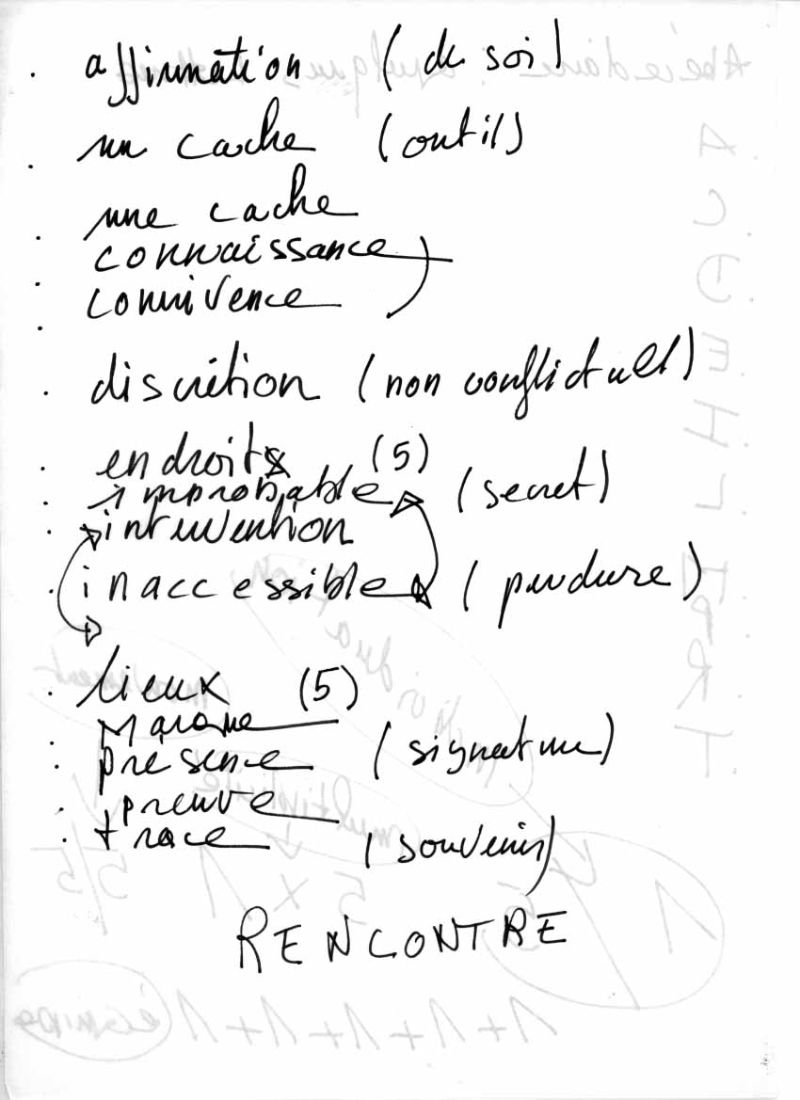 . affirmation (de soi)
. un cache (outil)
une cache
. connaissance
. connivence
. discrétion (non conflictuel)
. endroits (5)
. improbable (secret)
. intervention
. inaccessible (perdure)
. lieux (5)
. marque
. présence (signature)
. preuve
. trace (souvenir)
RENCONTRE
A
C
D
E
I
L
P
R
T
5/5
5 x 1
1/5
1+1+1+1+1